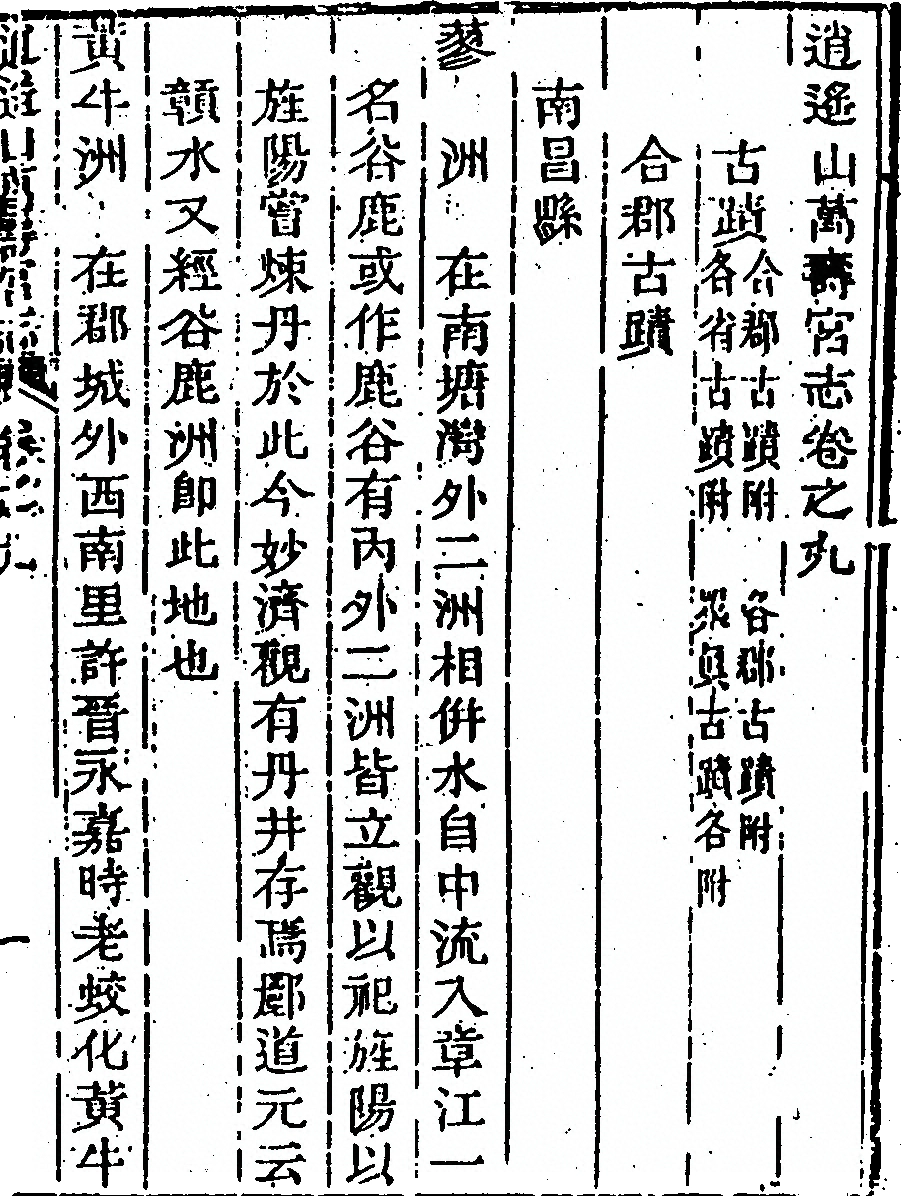 逍遙山萬壽宮志卷之九
古蹟 合郡古蹟附 各郡古蹟附
各省古蹟附 眾真古蹟各附
合郡古蹟
南昌縣
蓼洲 在南塘灣外二洲相併水自中流入章江一
名谷鹿或作鹿谷有內外二洲皆立觀以祀旌陽以
旌陽嘗煉丹於此今妙濟觀有丹井存焉酈道元云
贛水又經谷鹿洲卽此地也
黃牛洲 在郡城外西南里許晉永嘉時老蛟化黃牛